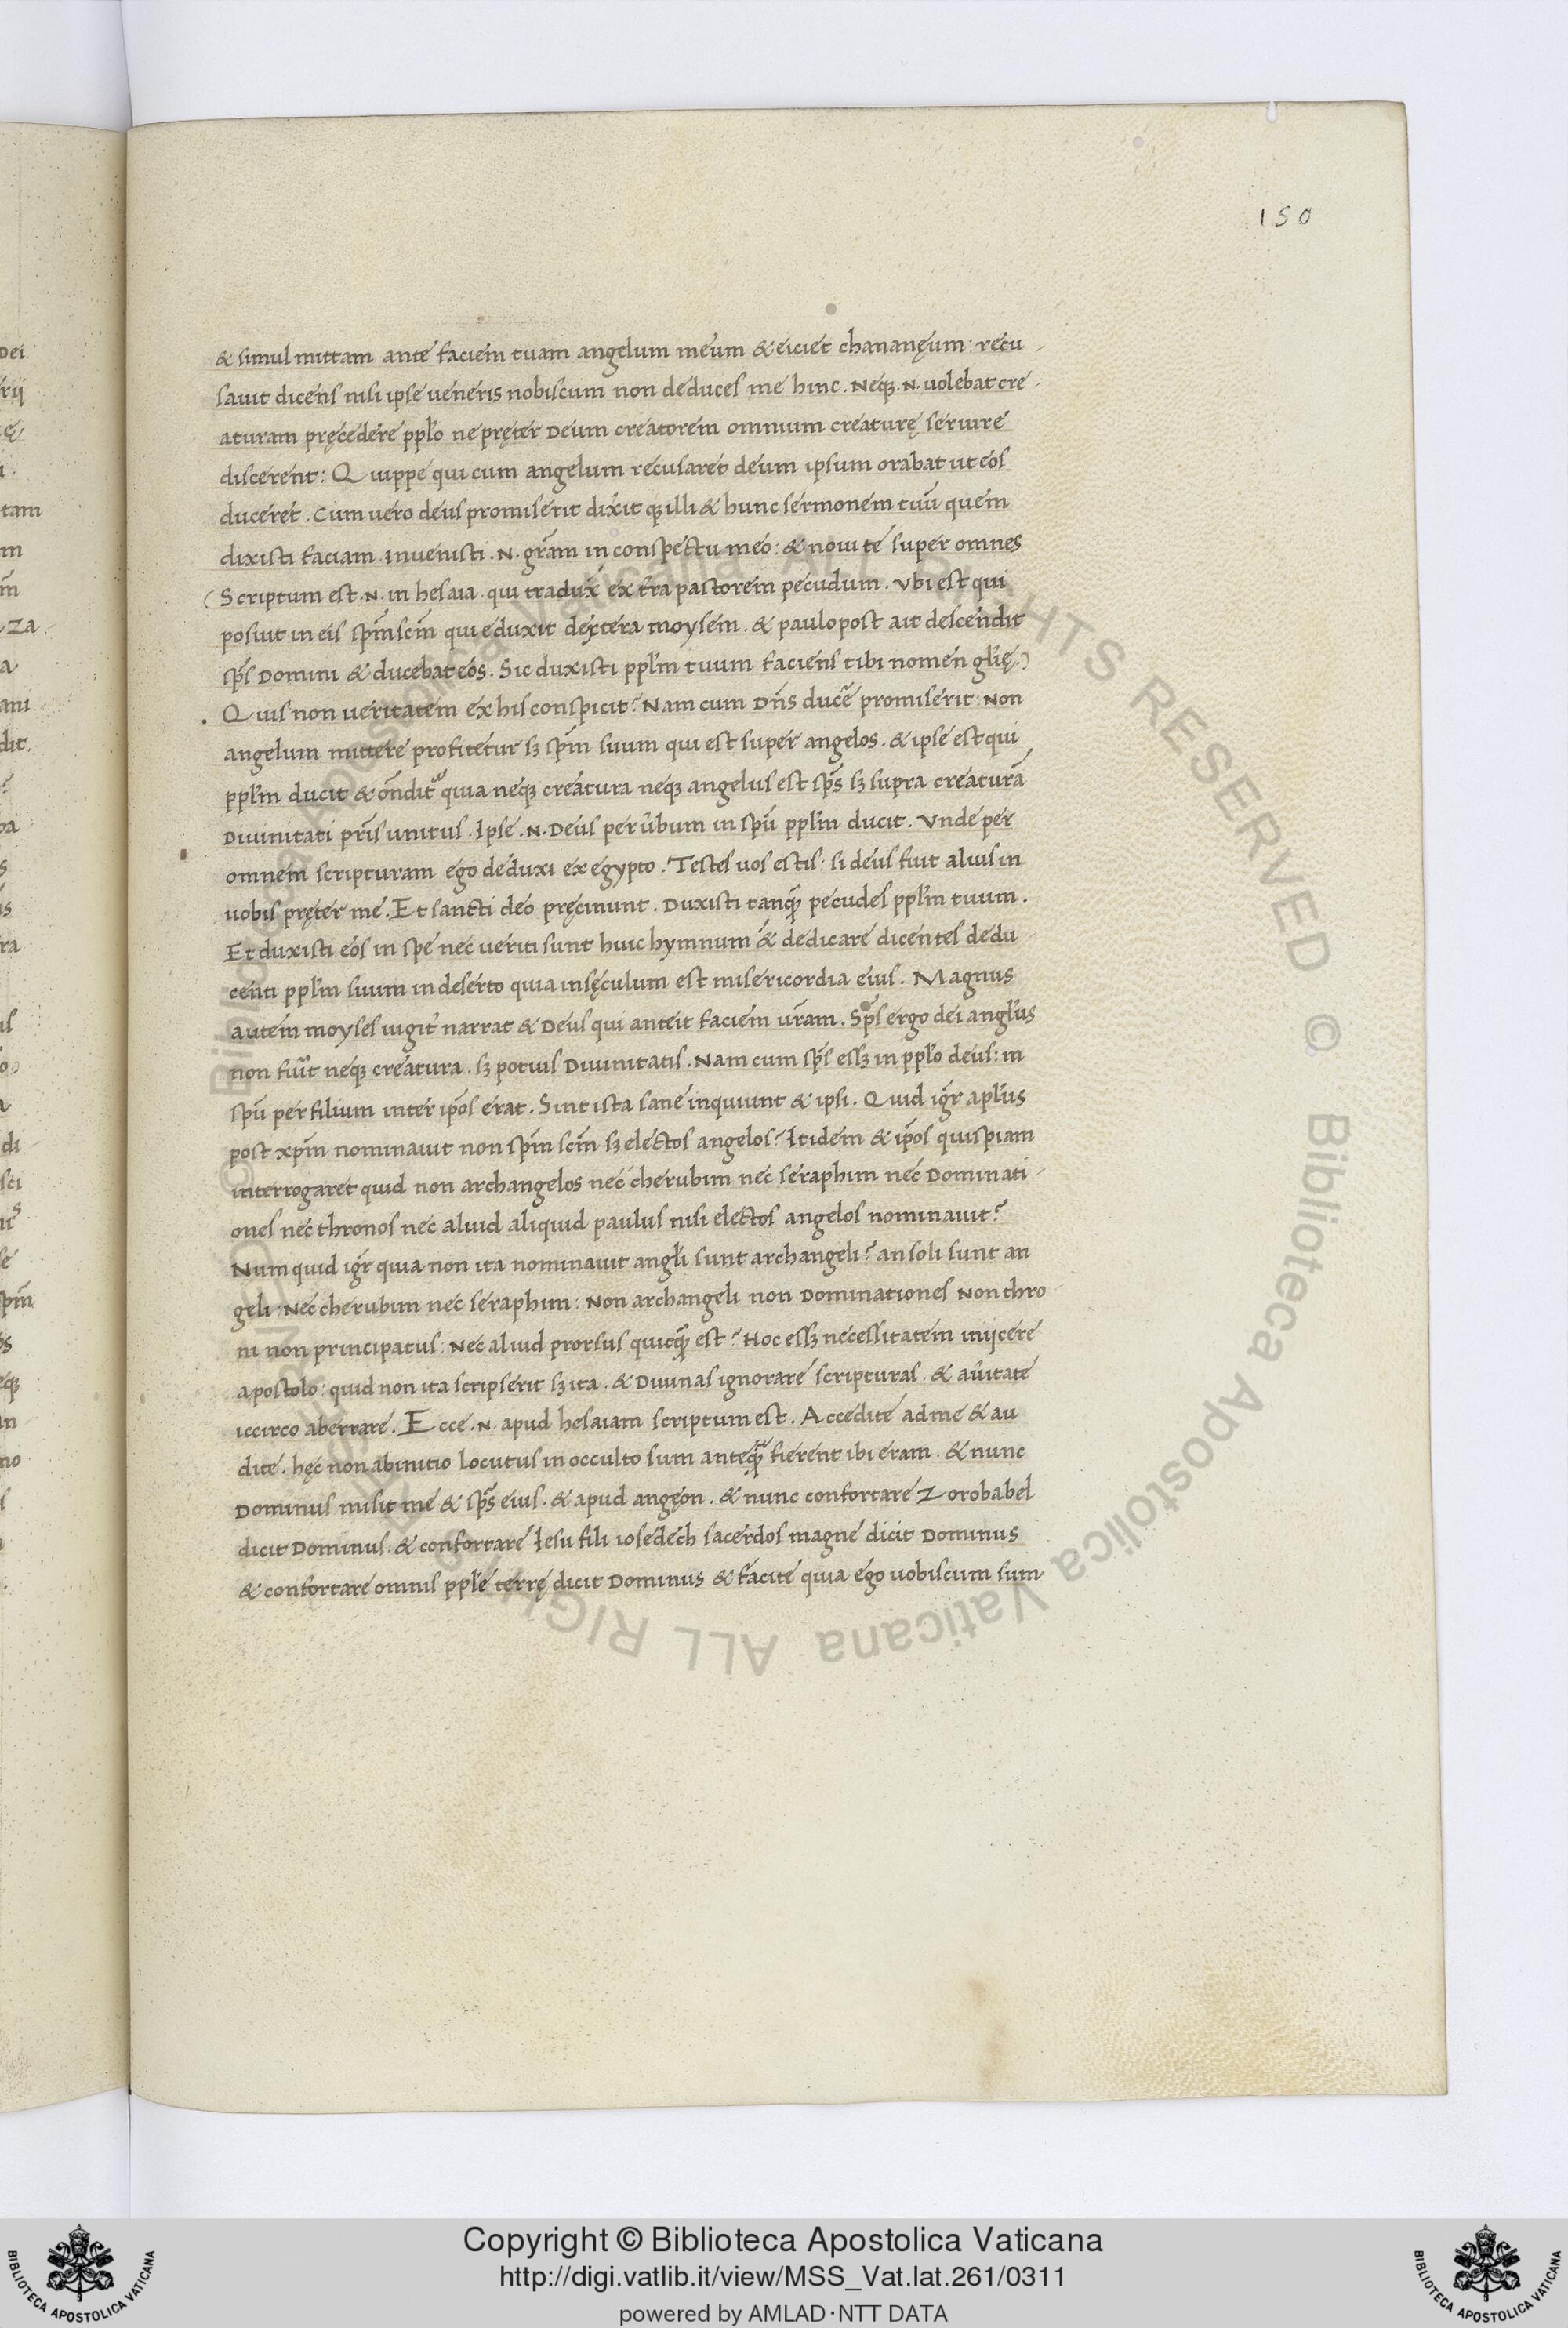 150
& simul mittam ante faciem tuam angelum meum & eiciet chananęum: recu
sauit dicens nisi ipse ueneris nobiscum non deduces me hinc. Neqꝫ .N. uolebat cre
aturam pręcedere pplo ne pręter Deum creatorem omnium creaturę seruire
discerent: Quippe qui cum angelum recusaret deum ipsum orabat ut eos
duceret. Cum uero deus promiserit dixitqꝫ illi & hunc sermonem tuū quem
dixisti faciam inuenisti .N. grām in conspectu meo: & noui te super omnes
(Scriptum est .N. in hesaia. qui tradux̄ ex tra pastorem pecudum. Vbi est qui
posuit in eis spm̄ scm̄ qui eduxit dextera moysem. & paulo post ait descendit
sps̄ Domini & ducebat eos. Sic duxisti pplm̄ tuum faciens tibi nomen glię.)
. Quis non ueritatem ex his conspicit? Nam cum Dn̄s ducē promiserit: Non
angelum mittere profitetur sꝫ spm̄ suum qui est super angelos. & ipse est qui
pplm̄ ducit & on̄dit quia neqꝫ creatura neqꝫ angelus est sps̄ sꝫ supra creaturā
Diuinitati pr̄is unitus. Ipse .N. Deus per ūbum in spū pplm̄ ducit. Vnde per
omnem scripturam ego deduxi ex egypto. Testes uos estis: si deus fuit alius in
uobis pręter me. Et sancti deo pręcinunt. Duxisti tanqꝫ̄ pecudes pplm̄ tuum.
Et duxisti eos in spe nec ueriti sunt huic hymnum & dedicare dicentes dedu
centi pplm̄ suum in deserto quia in sęculum est misericordia eius. Magnus
autem moyses iugit̄ narrat & Deus qui anteit faciem ur̄am. Sps̄ ergo dei angl̄us
non fuit neqꝫ creatura. sꝫ potius Diuinitatis. Nam cum sps̄ essꝫ in pplo deus: in
spū per filium inter ip̄os erat. Sint ista sane inquiunt & ipsi. Quid igr̄ apl̄us
post xpm̄ nominauit non spm̄ scm̄ sꝫ electos angelos? Itidem & ip̄os quispiam
interrogaret quid non archangelos nec cherubim nec seraphim nec Dominati
ones nec thronos nec aliud aliquid paulus nisi electos angelos nominauit?
Num quid igr̄ quia non ita nominauit angl̄i sunt archangeli? an soli sunt an
geli: Nec cherubim nec seraphim: Non archangeli non Dominationes Non thro
ni non principatus: Nec aliud prorsus quicqꝫ̄ est? Hoc essꝫ necessitatem inijcere
apostolo: quid non ita scripserit sꝫ ita. & Diuinas ignorare scripturas. & aūitate
iccirco aberrare. Ecce .N. apud hesaiam scriptum est. Accedite ad me & au
dite. hęc non ab initio locutus in occulto sum anteqꝫ̄ fierent ibi eram. & nunc
Dominus misit me & sps̄ eius. & apud angęon. & nunc confortare Zorobabel
dicit Dominus: & confortare Iesu fili iosedech sacerdos magne dicit Dominus
& confortare omnis pple terrę dicit Dominus & facite quia ego uobiscum sum
Copyright © Biblioteca Apostolica Vaticana
http://digi.vatlib.it/view/MSS_Vat.lat.261/0311
powered by AMLAD·NTT DATA